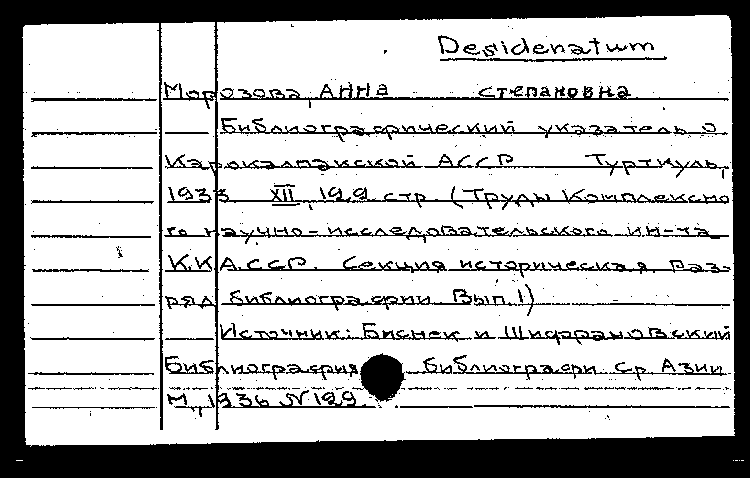 Desidenatum
Морозова, Анна степановна
Библиографический указатель о
Каракалпакской АССР Турткуль,
1933 XII, 199 стр. (Труды Комплексно
го научно-исследовательского ин-та
К.К А.С.С.Р. Секция историческая. Раз-
ряд библиографии Вып. 1)
Источник: Биснек и Шафрановский
Библиография библиографи Ср. Азии
М., 1936 N 129